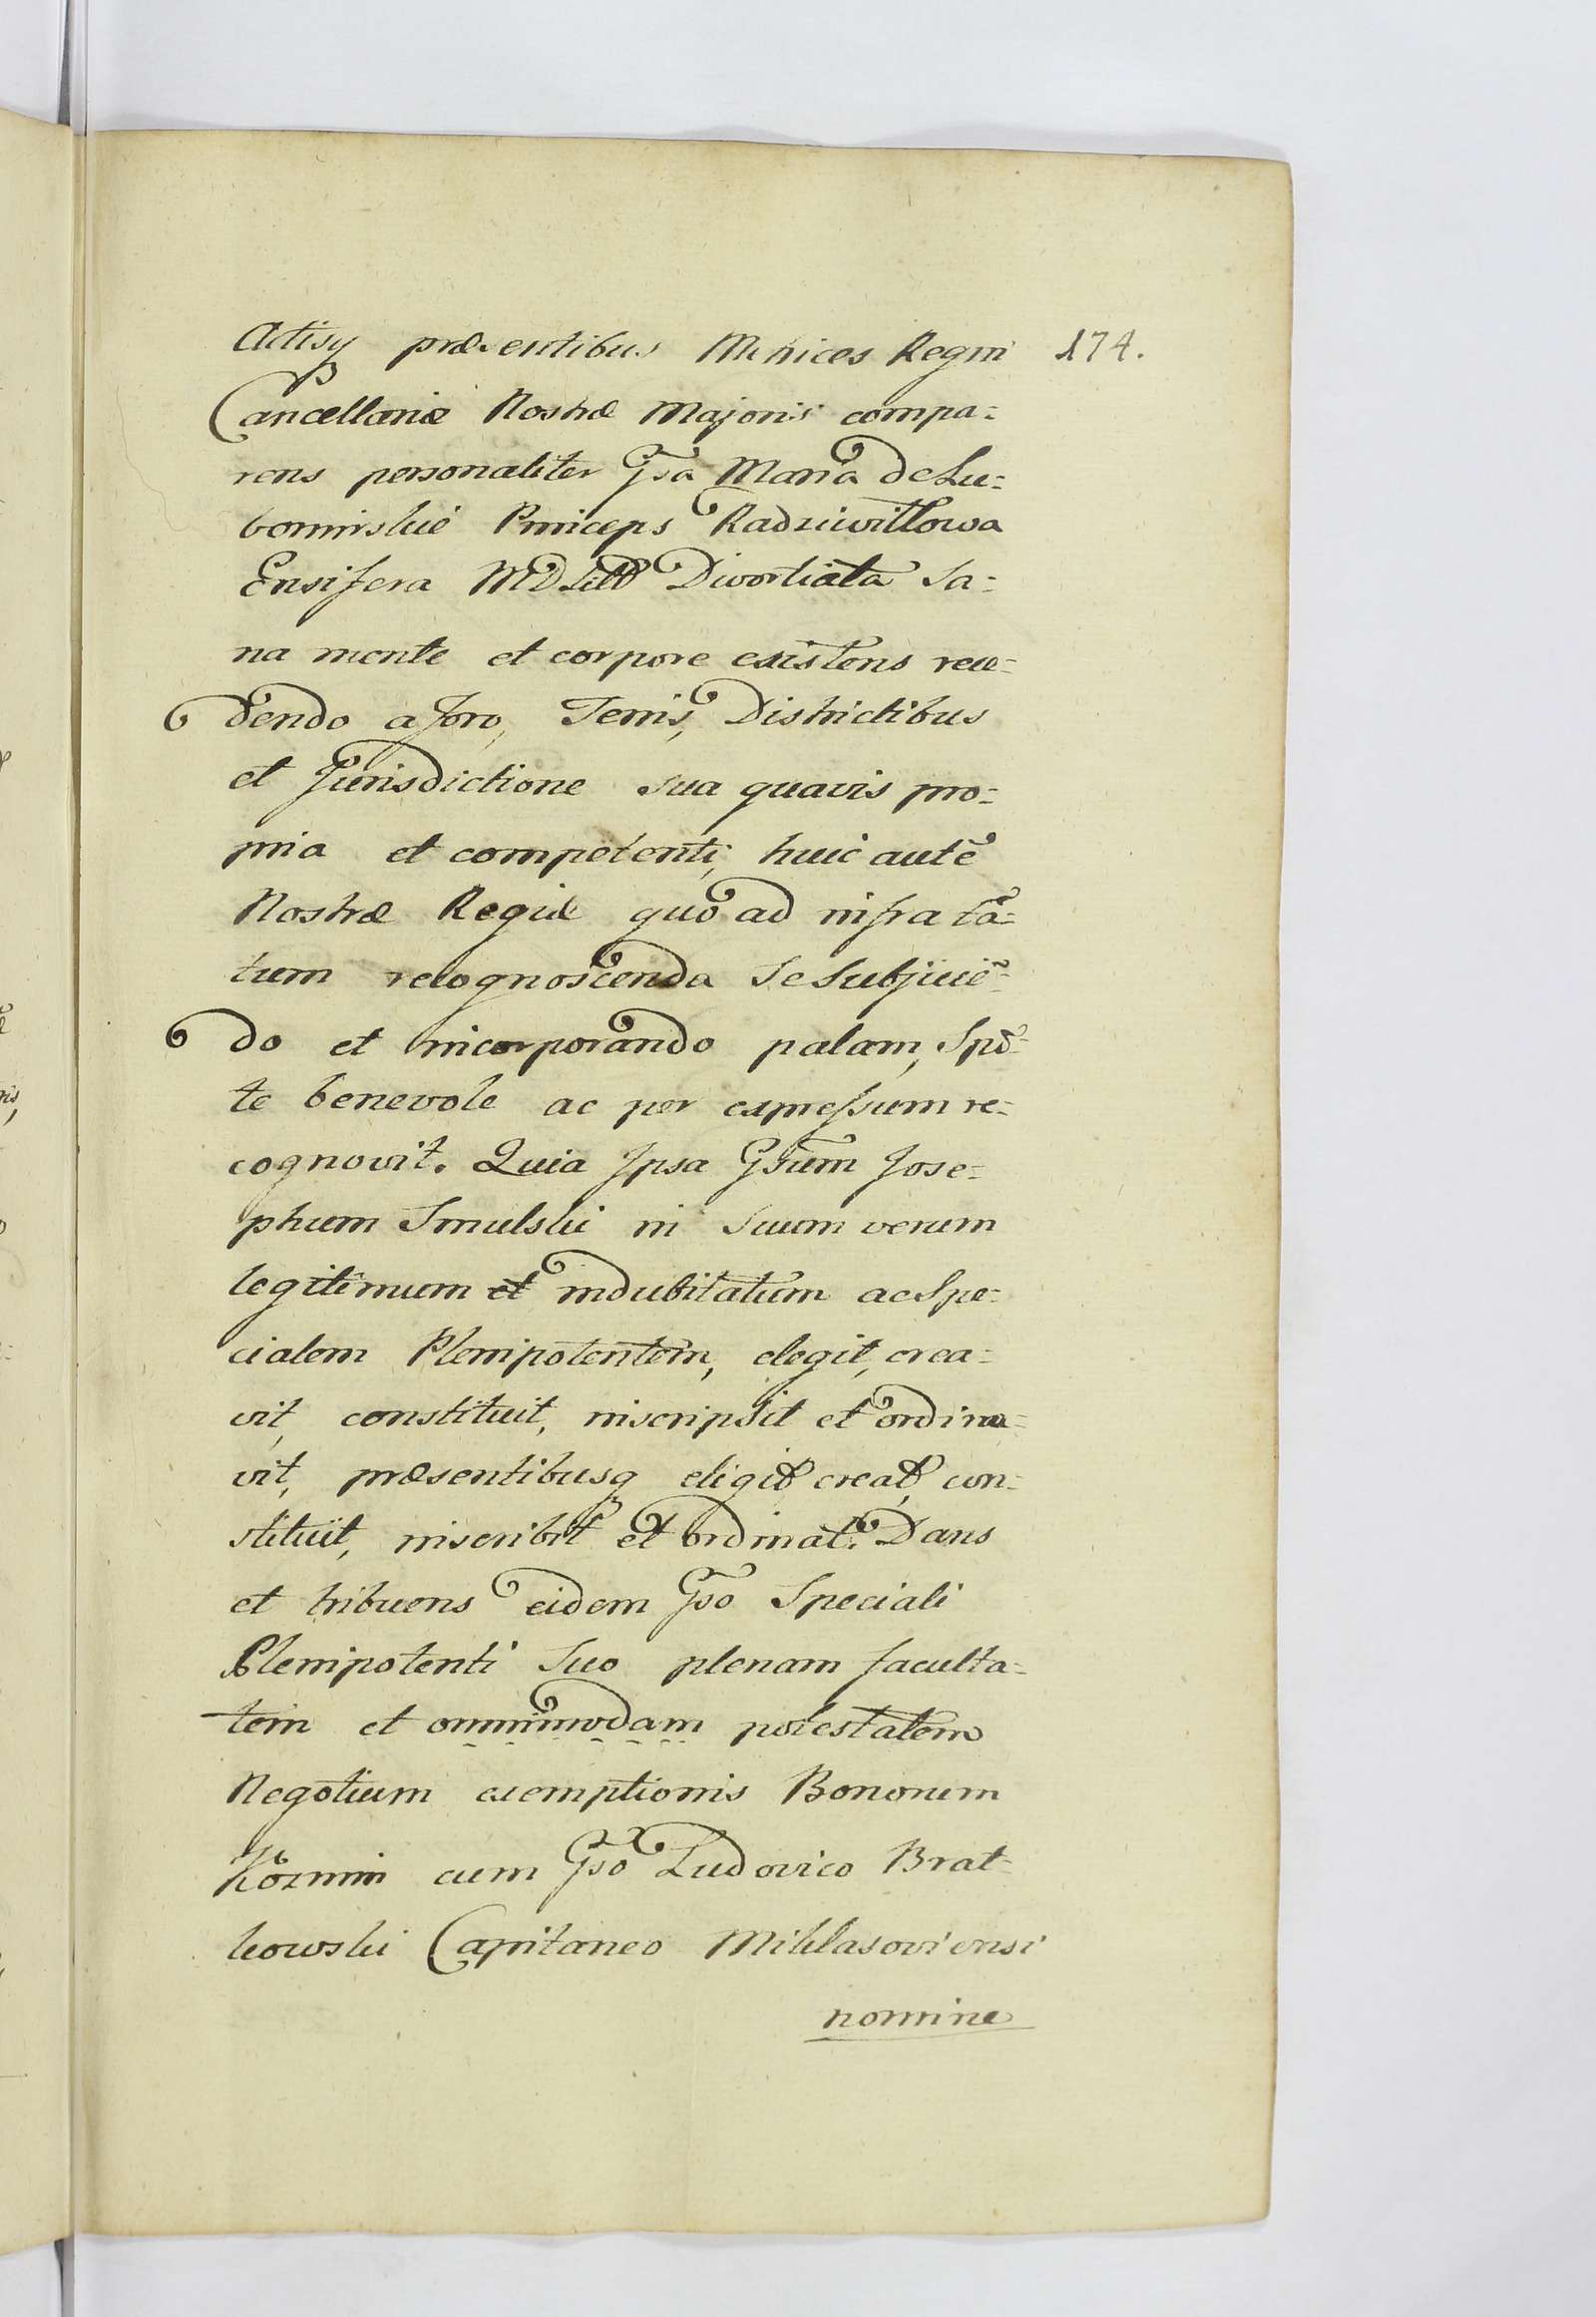 Actisq præsentibus Metrices Regni 174.
Cancellariæ Nostræ Majoris compa=
rens personaliter Gsa Maria de Lu=
bomirskie Princeps Radziwiłłowa
Ensifera MDLitt Divortiata Sa=
na mente et corpore existens rece=
dendo a foro, Terris, Districtibus
et Jurisdictione sua quavis pro=
pria et competenti, huic autē
Nostræ Regiæ quo ad infra tā=
tum recognoscenda Se Subjiciē=
do et incorporando palam, Spō=
te benevole ac per expressum re=
cognovit. Quia Ipsa Gsum Jose=
phum Smulski in Suum verum
legitimum et indubitatum ac Spe=
cialem Plenipotentem, elegit, crea=
vit, constituit, inscripsit et ordina=
vit, præsentibusq eligit, creat, con=
stituit, inscribit et ordinat. Dans
et tribuens eidem Gso Speciali
Plenipotenti Suo plenam faculta=
tem et omnimodam potestatem
Negotium exemptionis Bonorum
Kozmin cum Gso Ludovico Brat=
kowski Capitaneo Miklasoviensi
nomine